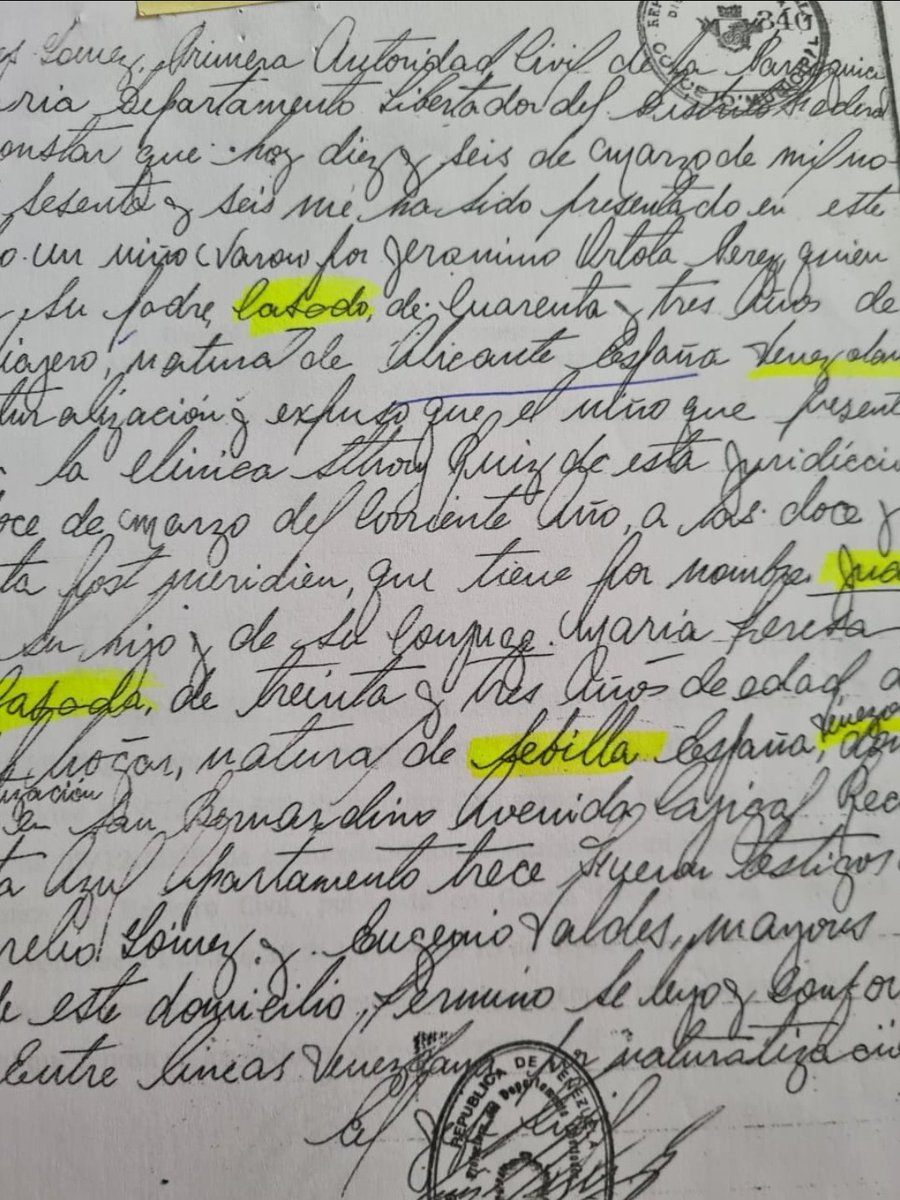 340
Gómez, Primera Autoridad Civil de la Parroquia
ria Departamento Libertador del Distrito Federal
onstar que hoy diez y seis de marzo de mil no-
sesenta y seis me ha sido presentado en este
o un niño varon por Jeronimo Ortola Perez quien
su padre, Casado, de Cuarenta y tres Años de
iajero, natural de Alicante España Venezolan
turalización y expuso que el niño que present
la clinica Ruiz de esta Juridicci
oce de marzo del Corriente Año, a las doce y
ta post meridien, que tiene por nombre Jua
su hijo y de su Conyuge Maria Teresa
Casada, de treinta y tres Años de edad,
hogar, natural de Sebilla España, Venezo
ización
en San Bernardino Avenida
a Azul Apartamento trece Fueron testigos
relio Gómez y Eugenio Valdes, mayores
de este domicilio, Termino se leyo y Confor
Entre lineas Venezolana naturalizació
El
REPUBLICA DE VENEZUELA